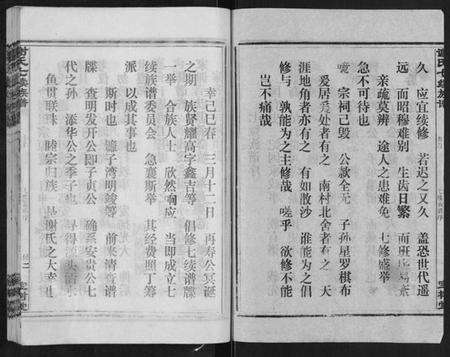 久 應宜续修 若迟之又久 蓋恐世代遥
远 而昭穆难别 生齿日繁 而班
亲疏莫辨 途人之患难免 七修盛举
急不可待也
噫 宗祠已毁 公款全无 子孙星罗棋布
爱居爱处者有之 南村北舍者有之 天
涯地角者亦有之 有如散沙 谁能为之倡
修与 孰能为之主修哉 嗟乎 欲修不能
岂不痛哉
幸己巳春 三月十二日 再寿公冥诞
之期 族贤耀高字鑫吉等 倡修七续谱牒
一举 合族人士 欣然响应 当即成立七
续族谱委员会 急襄斯举 其经费照丁筹
派 以成其事也
斯时也 濂子湾明錂等 前来濟公谱
牒 查明发开公即子贞公 确系安贵公七
代之孙 添华公之季子也 寻得
鱼贯联珠 睦宗归族 谢氏之大幸也